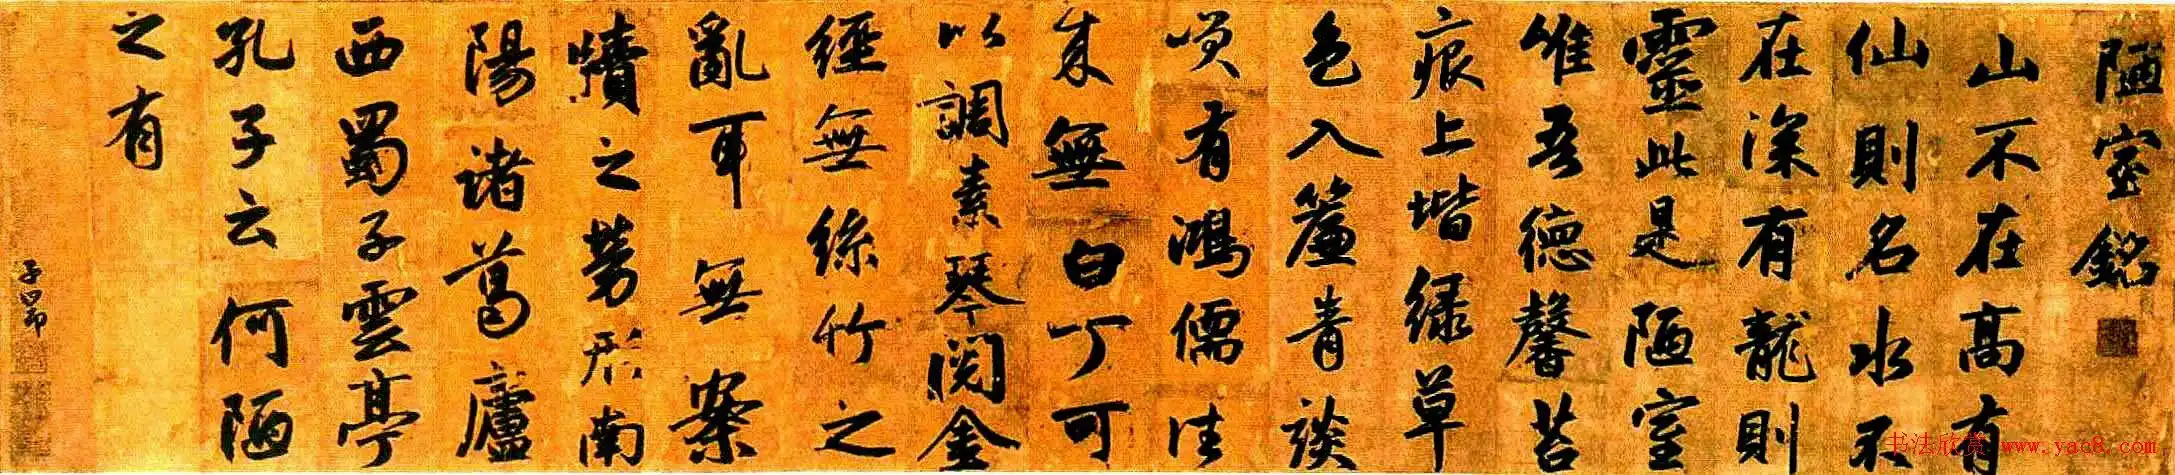 陋室銘
山不在高有
仙則名水不
在深有龍則
靈此是陋室
唯吾德馨苔
痕上堦緑草
色入簾青談
咲有鴻儒往
來無白丁可
以調素琴閱金
經無絲竹之
亂耳無案
牘之勞形南
陽諸葛廬
西蜀子雲亭
孔子云何陋
之有
子昂
书法欣赏 www.yac8.com